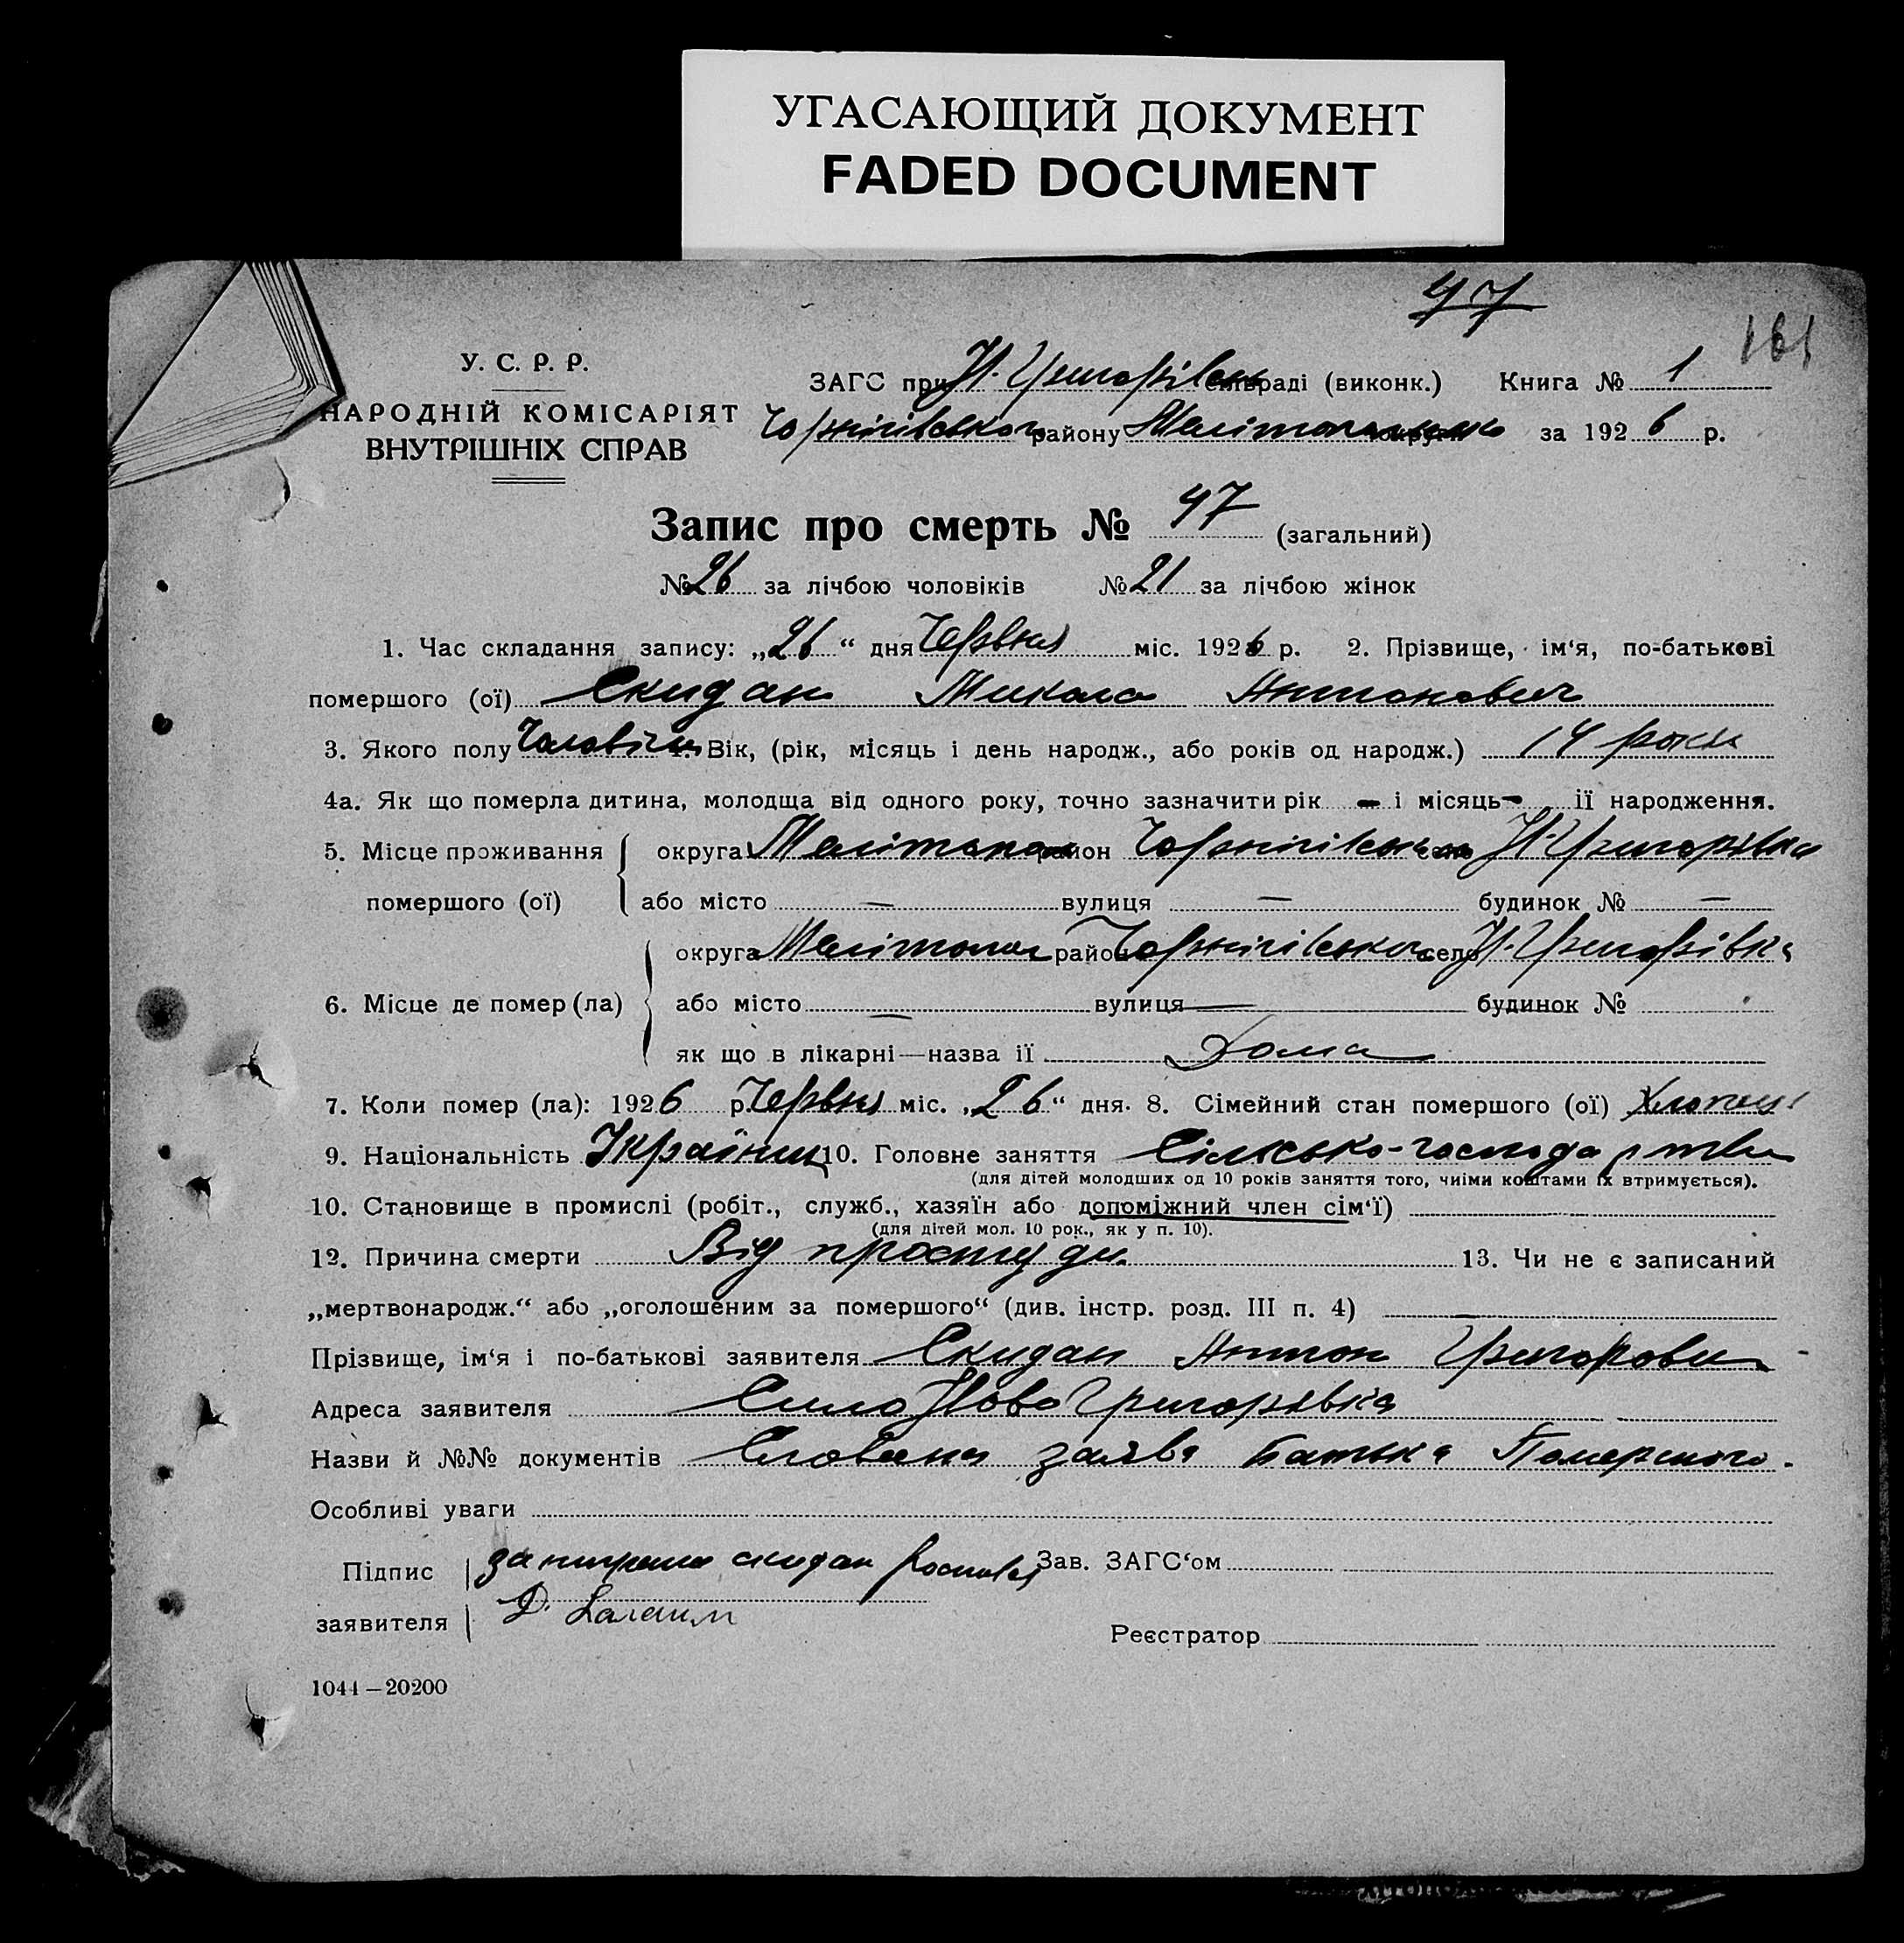 УГАСАЮЩИЙ ДОКУМЕНТ
FADED DOCUMENT
47
161
У. С. Р. Р.
НАРОДНІЙ КОМІСАРІЯТ
ВНУТРІШНІХ СПРАВ
ЗАГС при Н. Григорівськ раді (виконк.) Книга № 1
Чорнігівського району Мелітопольсько за 1926 р.
Запис про смерть № 47 (загальний)
№ 26 за лічбою чоловіків № 21 за лічбою жінок
1. Час складання запису: „26“ дня Червня міс. 1926 р. 2. Прізвище, ім‘я, по-батькові
помершого (ої) Скидан Микола Антонович
3. Якого полу Чоловічи 4. Вік, (рік, місяць і день народж., або років од народж.) 14 роки
4а. Як що померла дитина, молодща від одного року, точно зазначити рік - і місяць - ії народження.
5. Місце проживання помершого (ої) округа Мелітопол район Чорнігівсько село Н-Григорівка
або місто — вулиця — будинок № —
6. Місце де помер (ла) округа Мелітопол район Чорнігівсько село Н. Григорівка
або місто — вулиця — будинок №
як що в лікарні—назва ії Дома
7. Коли помер (ла): 1926 р. Червня міс. „26“ дня. 8. Сімейний стан помершого (ої)
9. Національність Українец 10. Головне заняття Сільсько-господарство
(для дітей молодших од 10 років заняття того, чиїми коштами їх втримується).
10. Становище в промислі (робіт., служб., хазяїн або допоміжний член сім‘ї)
(для дітей мол. 10 рок., як у п. 10).
12. Причина смерти Від простуди. 13. Чи не є записаний
„мертвонародж.“ або „оголошеним за помершого“ (див. інстр. розд. III п. 4)
Прізвище, ім‘я і по-батькові заявителя Скидан Антон Григорович
Адреса заявителя Село Ново Григорівка
Назви й №№ документів Словена заява Батька Помершого.
Особливі уваги
Підпис заявителя скидан Зав. ЗАГС‘ом
Д.
Реєстратор
1044—20200